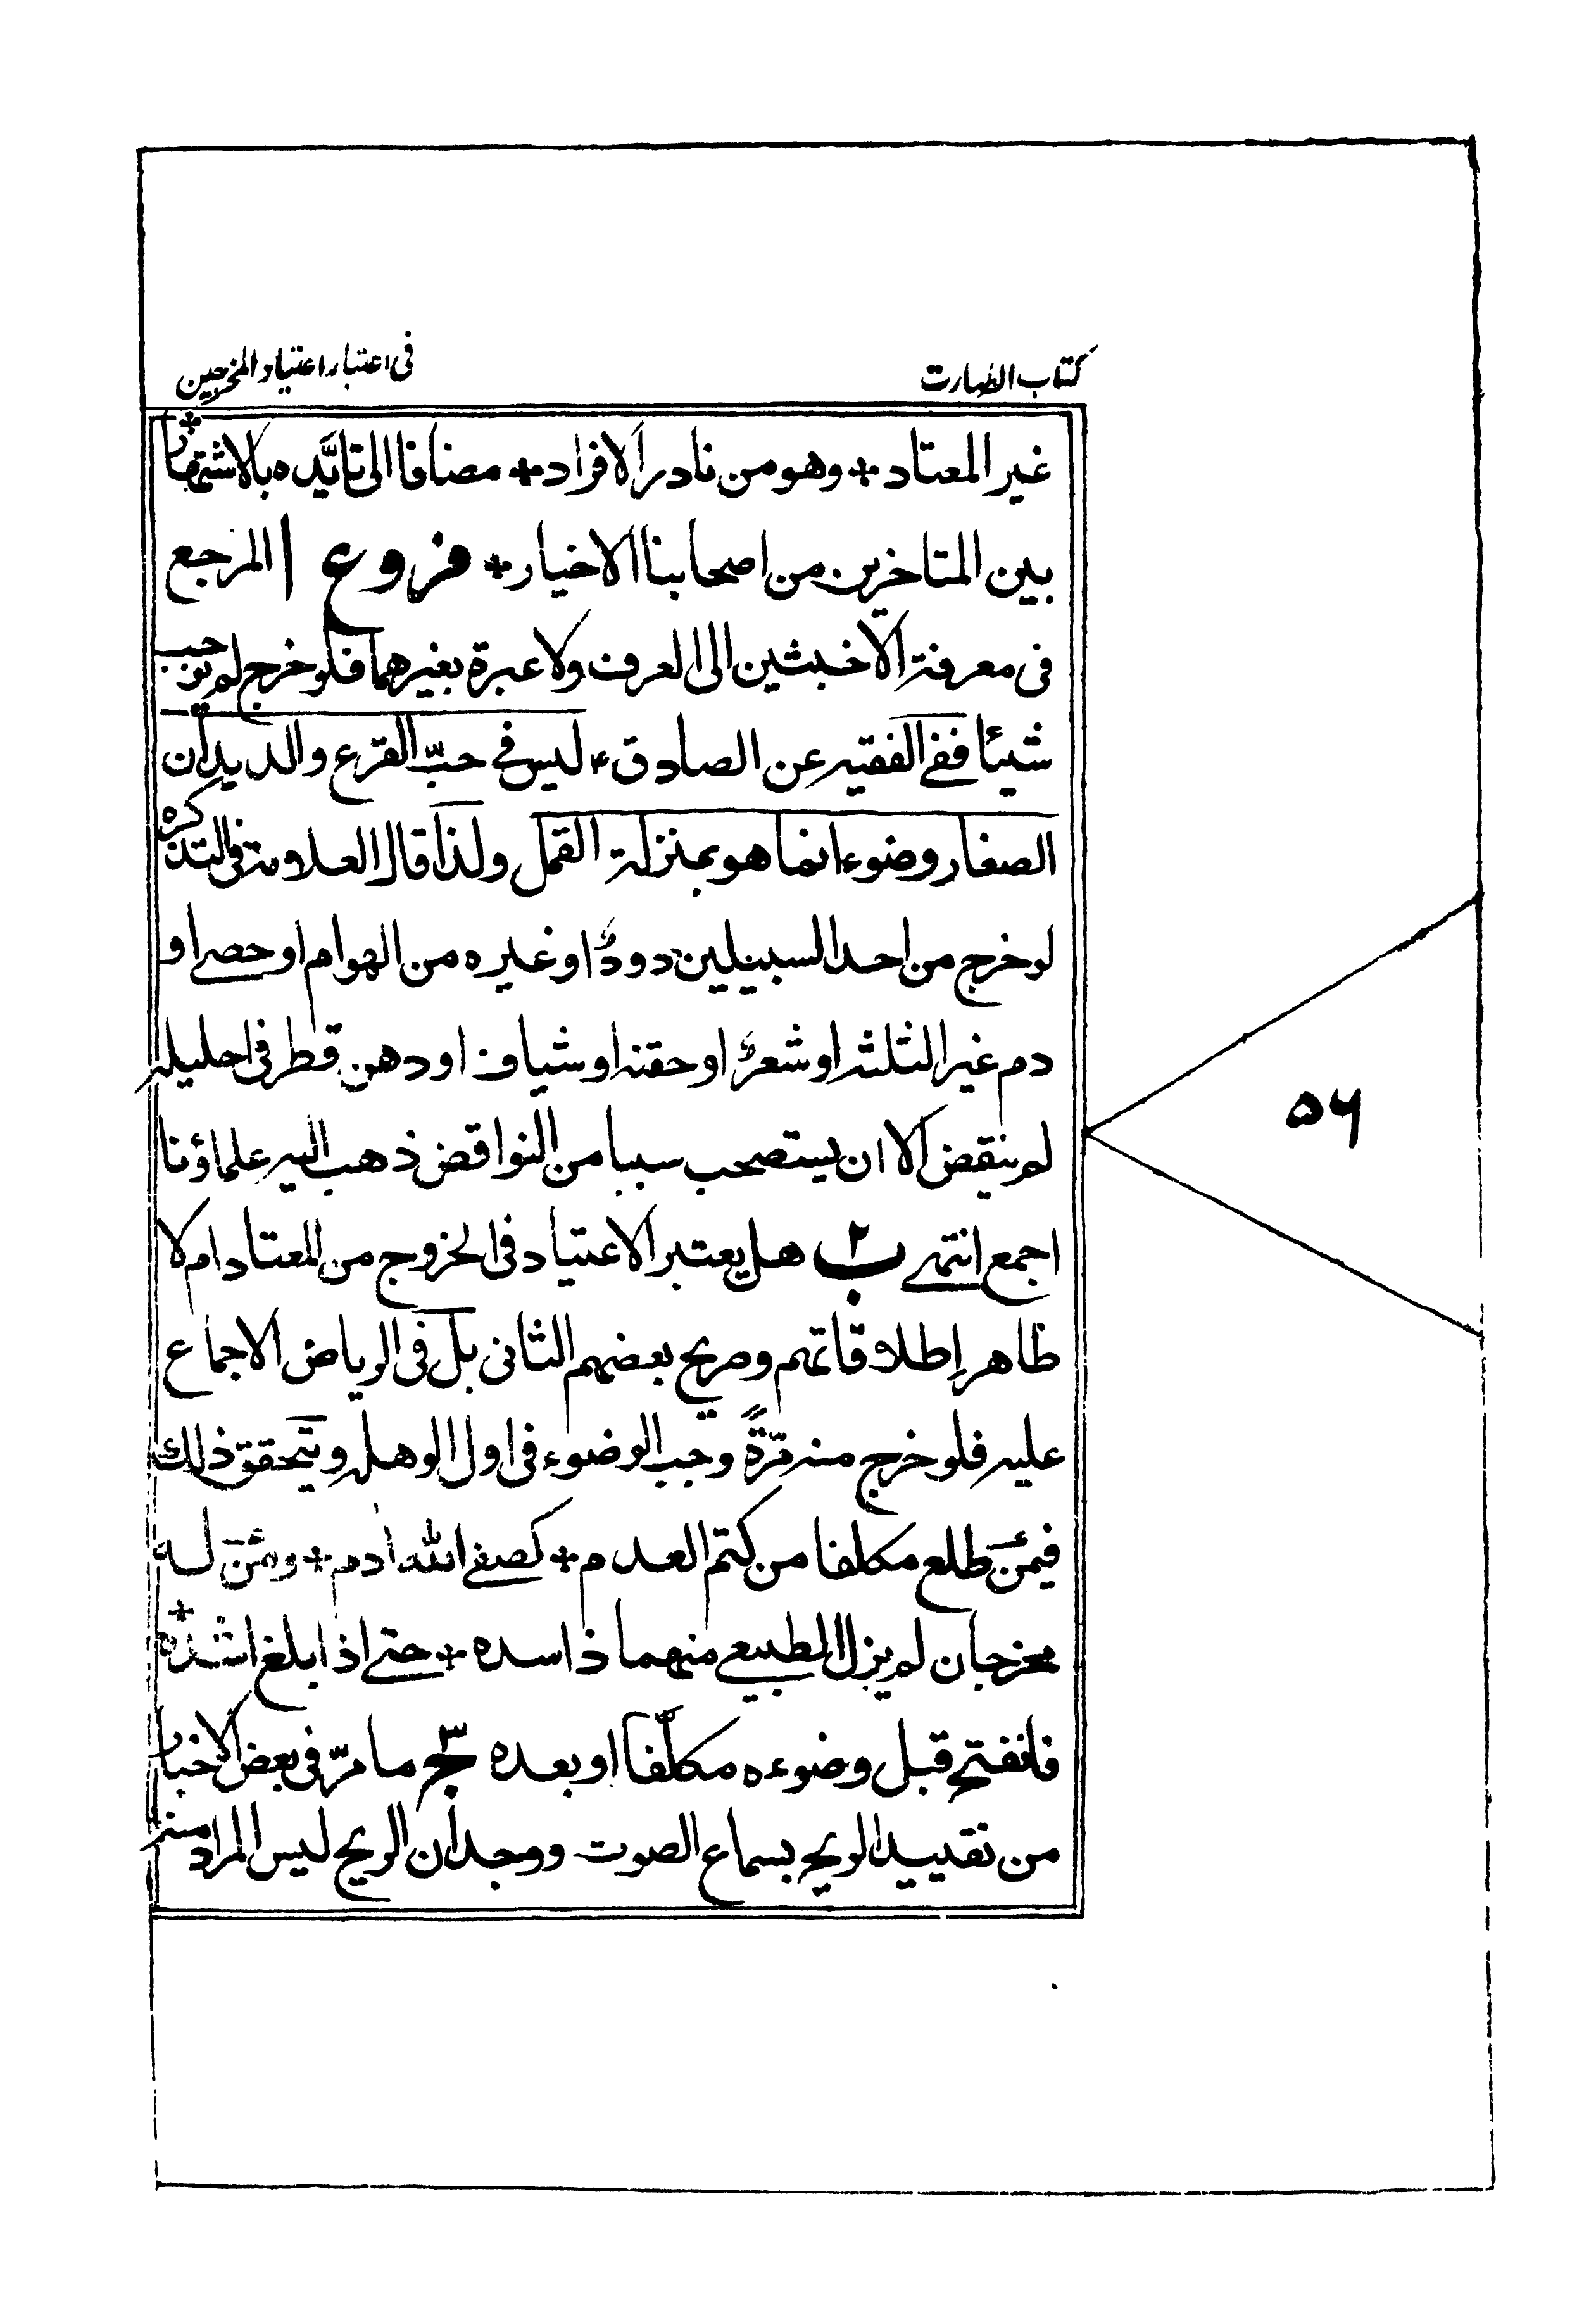 كتاب الطهارت
فى اعتبار اعتياد المخرجين
غير المعتاد * وهو من نادر الافراد * مضافا الى تايّده بالاشتهار *
بين المتاخرين من اصحابنا الاخيار * فروع ا المرجع
فى معرفة الاخبثين الى العرف ولا عبرة بغيرهما فلو خرج لم يوجب
شيئا ففى الفقيه عن الصادق ع ليس فى حبّ القرع والديدان
الصغار وضوء انما هو بمنزلة القمل ولذا قال العلامة فى التذكره
لو خرج من احد السبيلين دودٌ او غيره من الهوام او حصى او
دم غير الثلثه او شعرٌ او حقنه او شياف او دهن قطر فى احليله
لم ينقض الا ان يستصحب سببا من النواقض ذهب اليه علماؤنا
اجمع انتهى ب ٢ هل يعتبر الاعتياد فى الخروج من المعتاد ام لا
ظاهر اطلاقاتهم وصريح بعضهم الثانى بل فى الرياض الاجماع
عليه فلو خرج منه مرّةً وجب الوضوء فى اول الوهله ويتحقق ذلك
فيمَن طلع مكلفا من كتم العدم * كصفى الله ادم * ومَن له
مخرجان لم يزل الطبيعى منهما ذا سده * حتى اذا بلغ اشدّه *
فانفتح قبل وضوءه مكلّفا او بعده ج ٣ ما مرّ فى بعض الاخبار
من تقييد الريح بسماع الصوت ووجدان الريح ليس المراد منه
٥٦